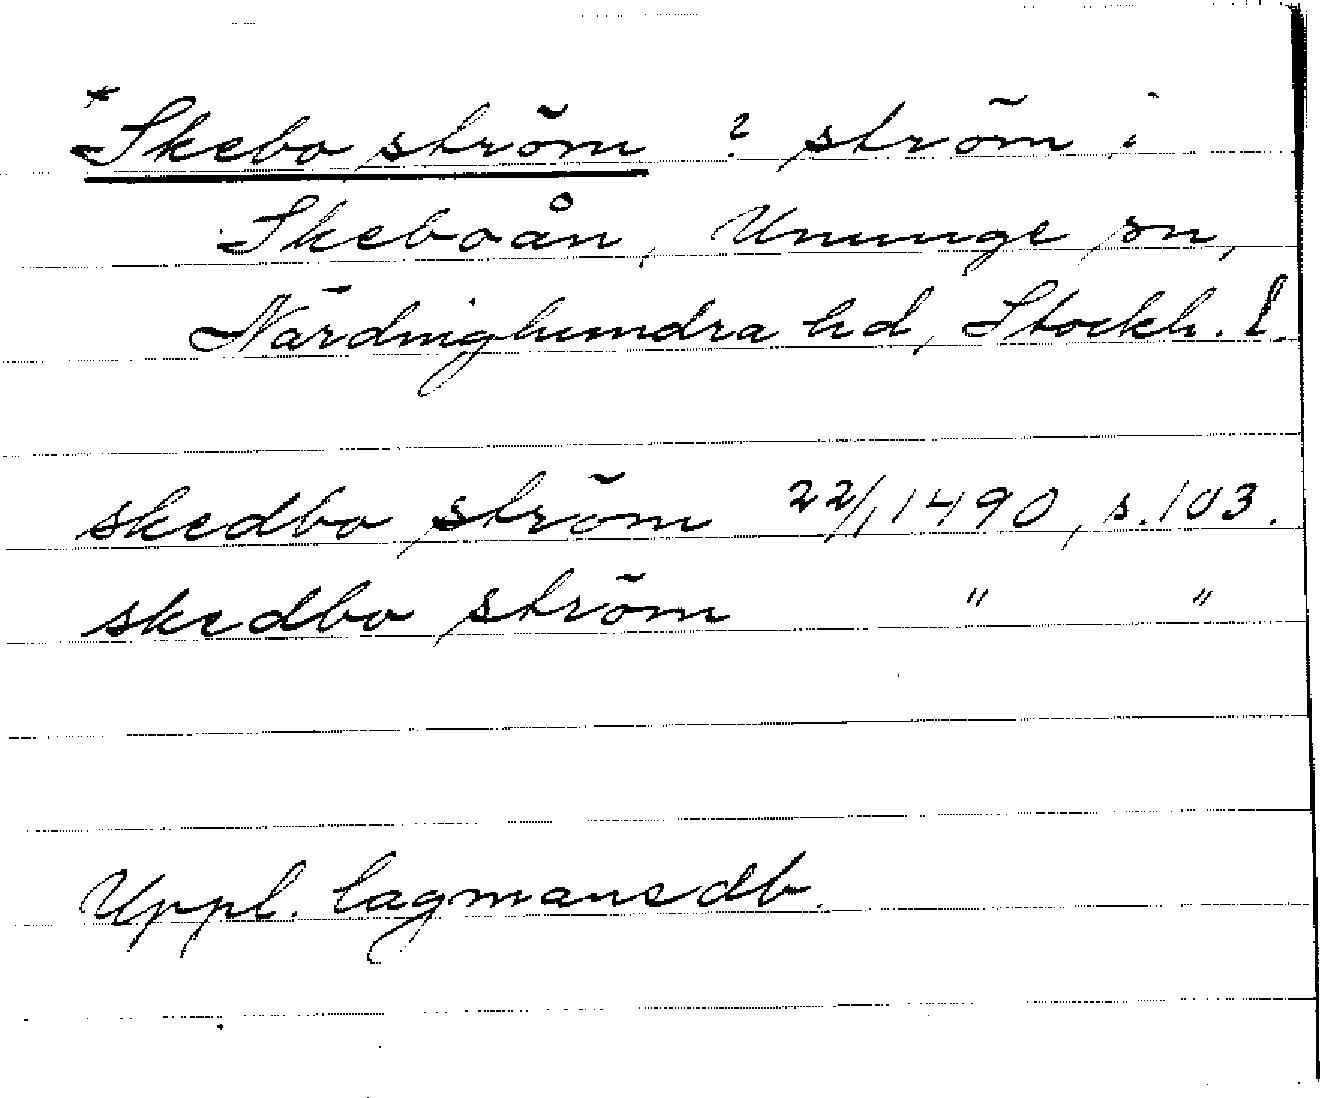 *Skebo ström ? ström i
Skeboån, Ununge sn,
Närdinghundra hd, Stockh. l.
skedbo ström 22/1 1490, s. 103.
skedbo ström " "
Uppl. lagmansdb.